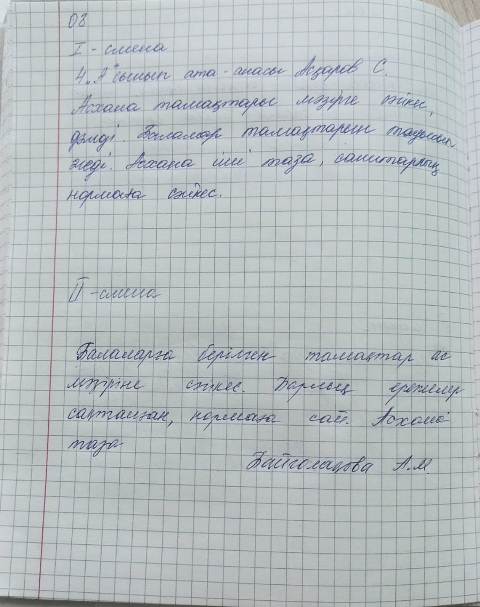 08
I - смена
4 "А" сынып ата-анасы Асқаров С.
Асхана тамақтары мәзірге сәйкес,
дәмді. Балалар тамақтарын тауысып
жеді. Асхана іші таза, санитарлық
нормаға сәйкес.
II - смена
Балаларға берілген тамақтар ас
мәзіріне сәйкес. Барлық ережелер
сақталған, нормаға сай. Асхана
таза
А.М